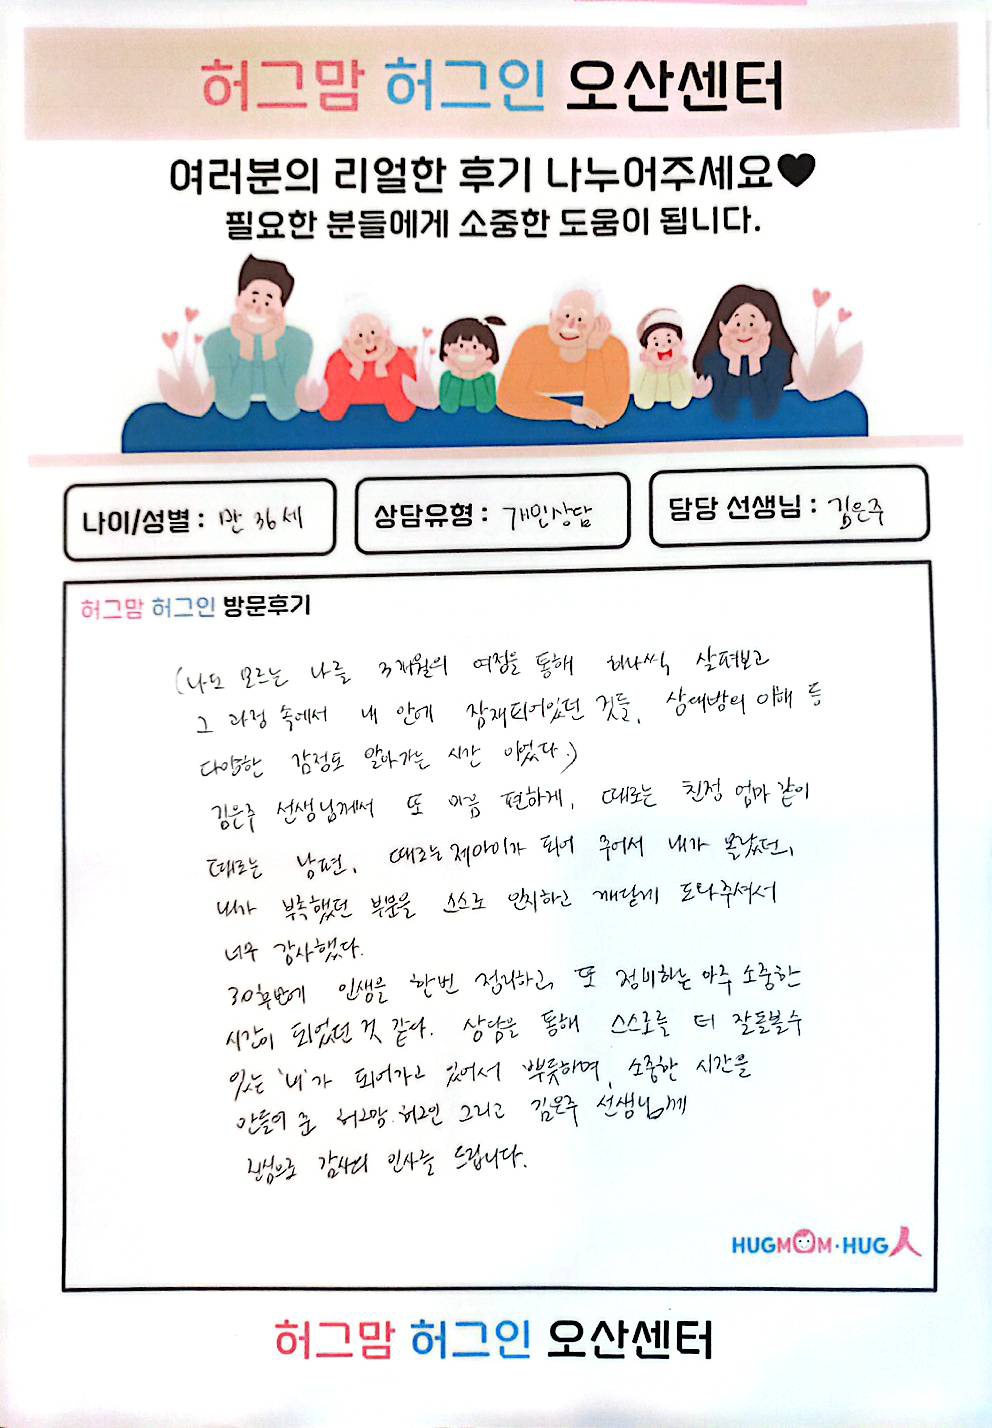 허그맘 허그인 오산센터
여러분의 리얼한 후기 나누어주세요♥
필요한 분들에게 소중한 도움이 됩니다.
나이/성별 : 만 36세
상담유형 : 개인상담
담당 선생님 : 김은주
허그맘 허그인 방문후기
(나도 모르는 나를 3개월의 여정을 통해 하나씩 살펴보고
그 과정 속에서 내 안에 잠재되어있던 것들, 상대방의 이해 등
다양한 감정도 알아가는 시간 이었다.)
김은주 선생님께서 또 마음 편하게, 때로는 친정 엄마 같이
때로는 남편, 때로는 제아이가 되어 주어서 내가 몰랐던,
내가 부족했던 부분을 스스로 인지하고 깨닫게 도와주셔서
너무 감사했다.
30후반에 인생을 한번 정리하고, 또 정비하는 아주 소중한
시간이 되었던 것 같다. 상담을 통해 스스로를 더 잘돌볼수
있는 '나'가 되어가고 있어서 뿌듯하며, 소중한 시간을
만들어 준 허그맘.허그인 그리고 김은주 선생님께
진심으로 감사의 인사를 드립니다.
HUGMOM·HUG人
허그맘 허그인 오산센터